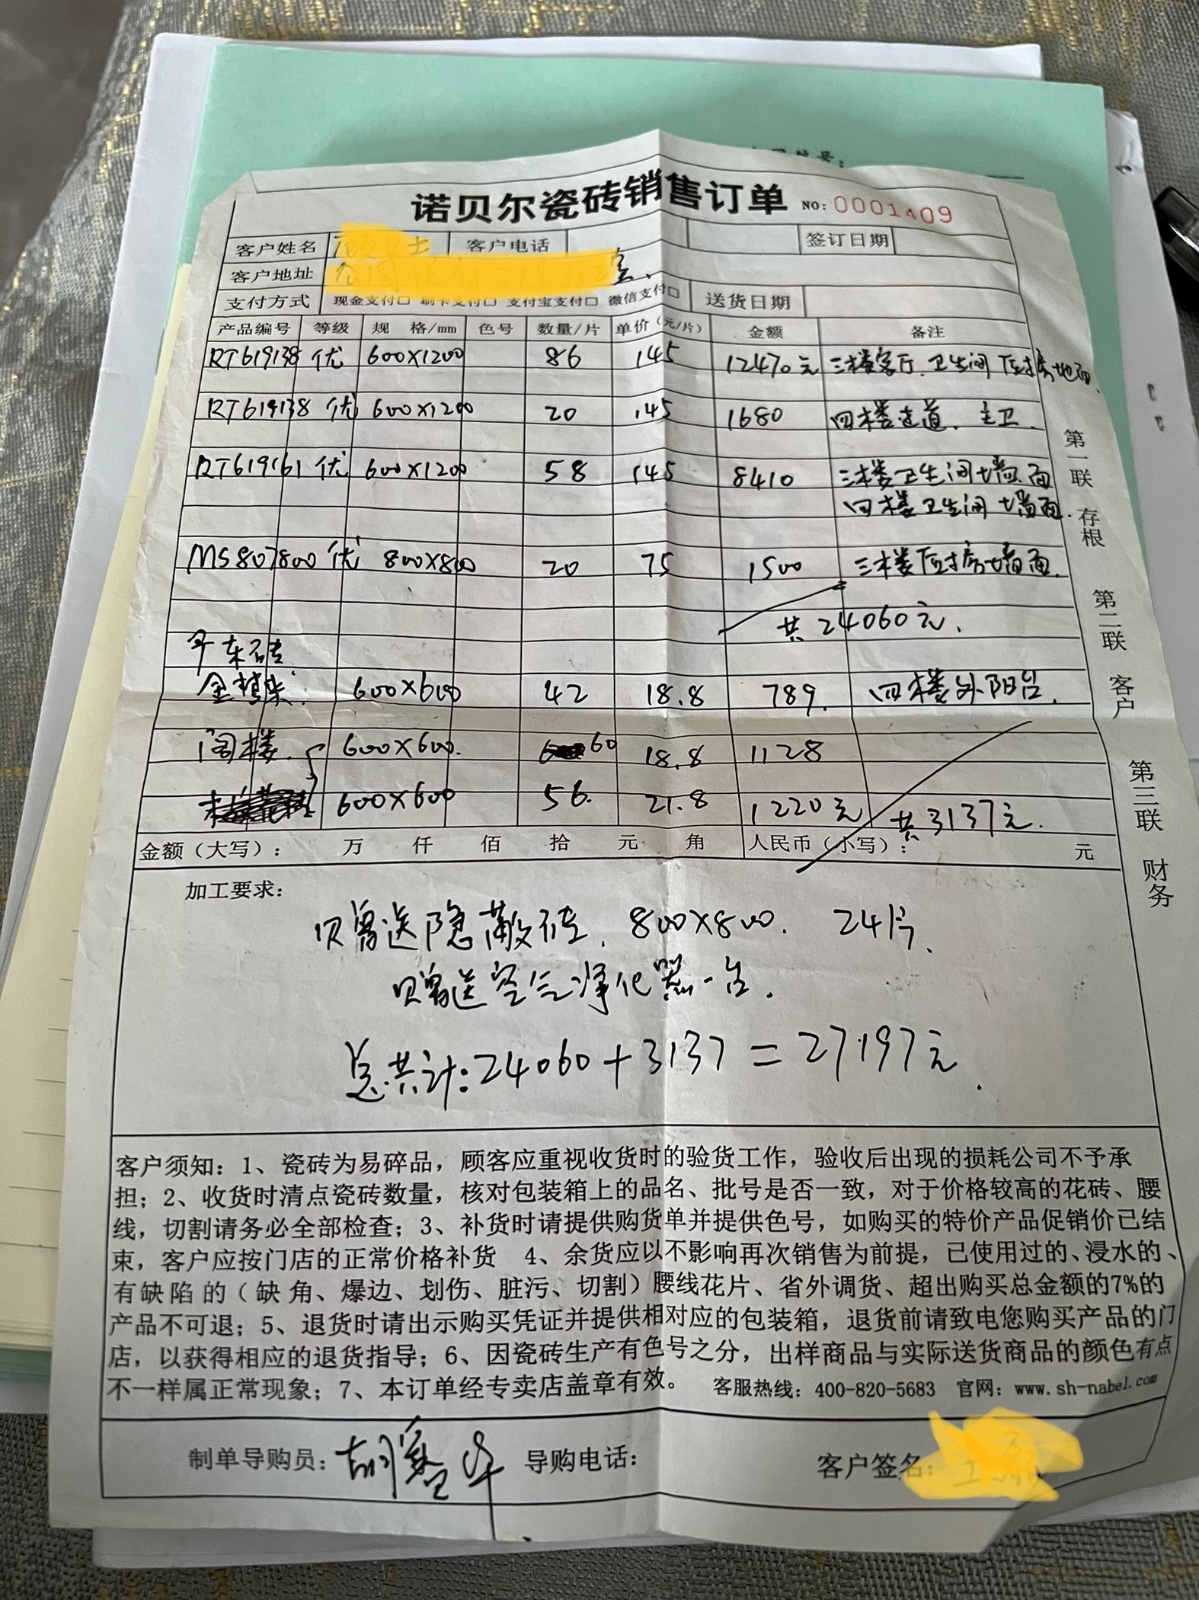 诺贝尔瓷砖销售订单 NO: 0001409
客户姓名 士 客户电话 签订日期
客户地址 室.
支付方式 现金支付□ 刷卡支付□ 支付宝支付□ 微信支付□ 送货日期
产品编号 等级 规 格/mm 色号 数量/片 单价(元/片) 金额 备注
RT619138 优 600×1200 86 145 12470元 三楼客厅.卫生间 厨房地面.
RT619138 优 600×1200 20 145 1680 四楼过道. 主卫.
RT619161 优 600×1200 58 145 8410 三楼卫生间墙面
四楼卫生间墙面.
MS807800 优 800×800 20 75 1500 三楼厨房墙面.
共24060元.
600×600 42 18.8 789. 四楼外阳台.
阁楼. 600×600. 60 18.8 1128
600×600 56. 21.8 1220元 共3137元.
金额(大写): 万 仟 佰 拾 元 角 人民币(小写): 元
第一联 存根 第二联 客户 第三联 财务
加工要求:
赠送隐蔽砖. 800×800. 24片.
赠送空气净化器一台.
总共计:24060+3137=27197元.
客户须知:1、瓷砖为易碎品,顾客应重视收货时的验货工作,验收后出现的损耗公司不予承
担;2、收货时清点瓷砖数量,核对包装箱上的品名、批号是否一致,对于价格较高的花砖、腰
线,切割请务必全部检查;3、补货时请提供购货单并提供色号,如购买的特价产品促销价已结
束,客户应按门店的正常价格补货 4、余货应以不影响再次销售为前提,已使用过的、浸水的、
有缺陷的(缺角、爆边、划伤、脏污、切割)腰线花片、省外调货、超出购买总金额的7%的
产品不可退;5、退货时请出示购买凭证并提供相对应的包装箱,退货前请致电您购买产品的门
店,以获得相应的退货指导;6、因瓷砖生产有色号之分,出样商品与实际送货商品的颜色有点
不一样属正常现象;7、本订单经专卖店盖章有效。 客服热线:400-820-5683 官网:www.sh-nabel.com
制单导购员: 导购电话: 客户签名: